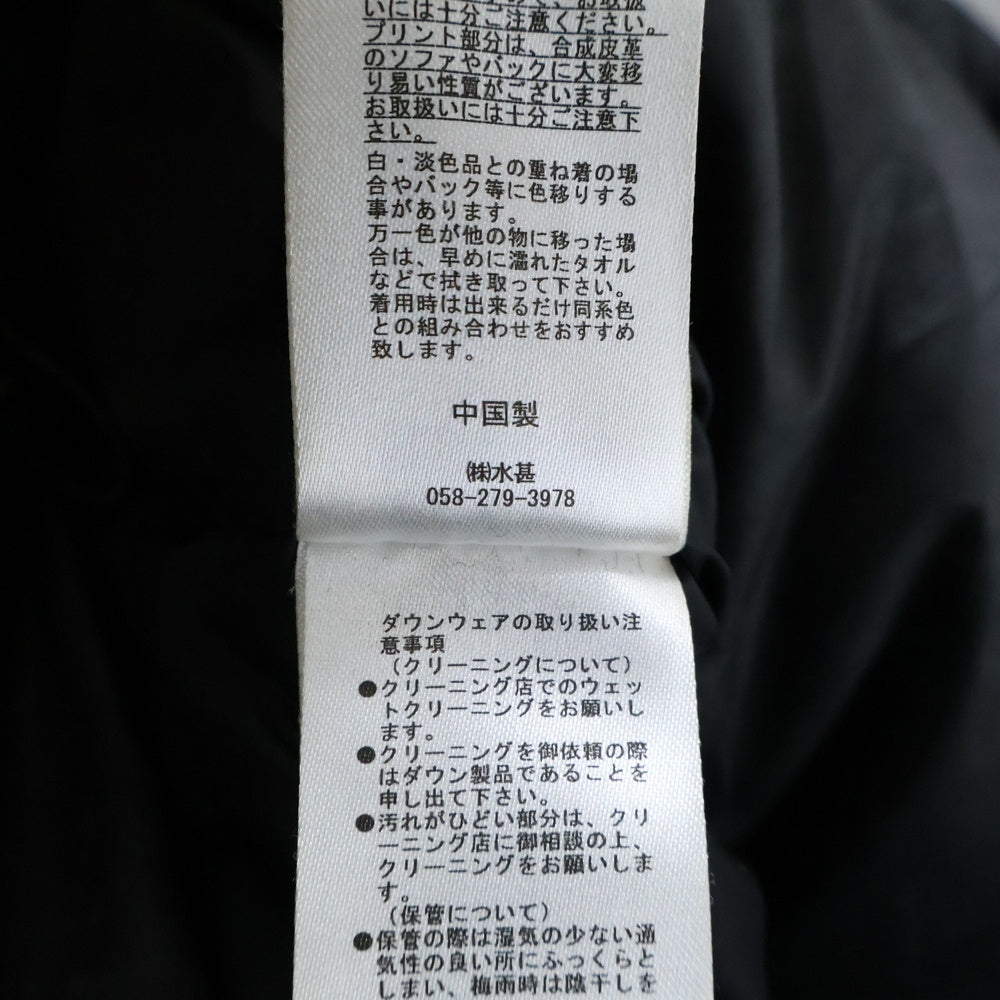 お取扱
いには十分ご注意ください。
プリント部分は、合成皮革
のソファやバックに大変移
り易い性質がございます。
お取扱いには十分ご注意下
さい。
白・淡色品との重ね着の場
合やバック等に色移りする
事があります。
万一色が他の物に移った場
合は、早めに濡れたタオル
などで拭き取って下さい。
着用時は出来るだけ同系色
との組み合わせをおすすめ
致します。
中国製
㈱水甚
058-279-3978
ダウンウェアの取り扱い注
意事項
(クリーニングについて)
●クリーニング店でのウェッ
トクリーニングをお願いし
ます。
●クリーニングを御依頼の際
はダウン製品であることを
申し出て下さい。
●汚れがひどい部分は、クリ
ーニング店に御相談の上、
クリーニングをお願いしま
す。
(保管について)
●保管の際は湿気の少ない通
気性の良い所にふっくらと
しまい、梅雨時は陰干しを